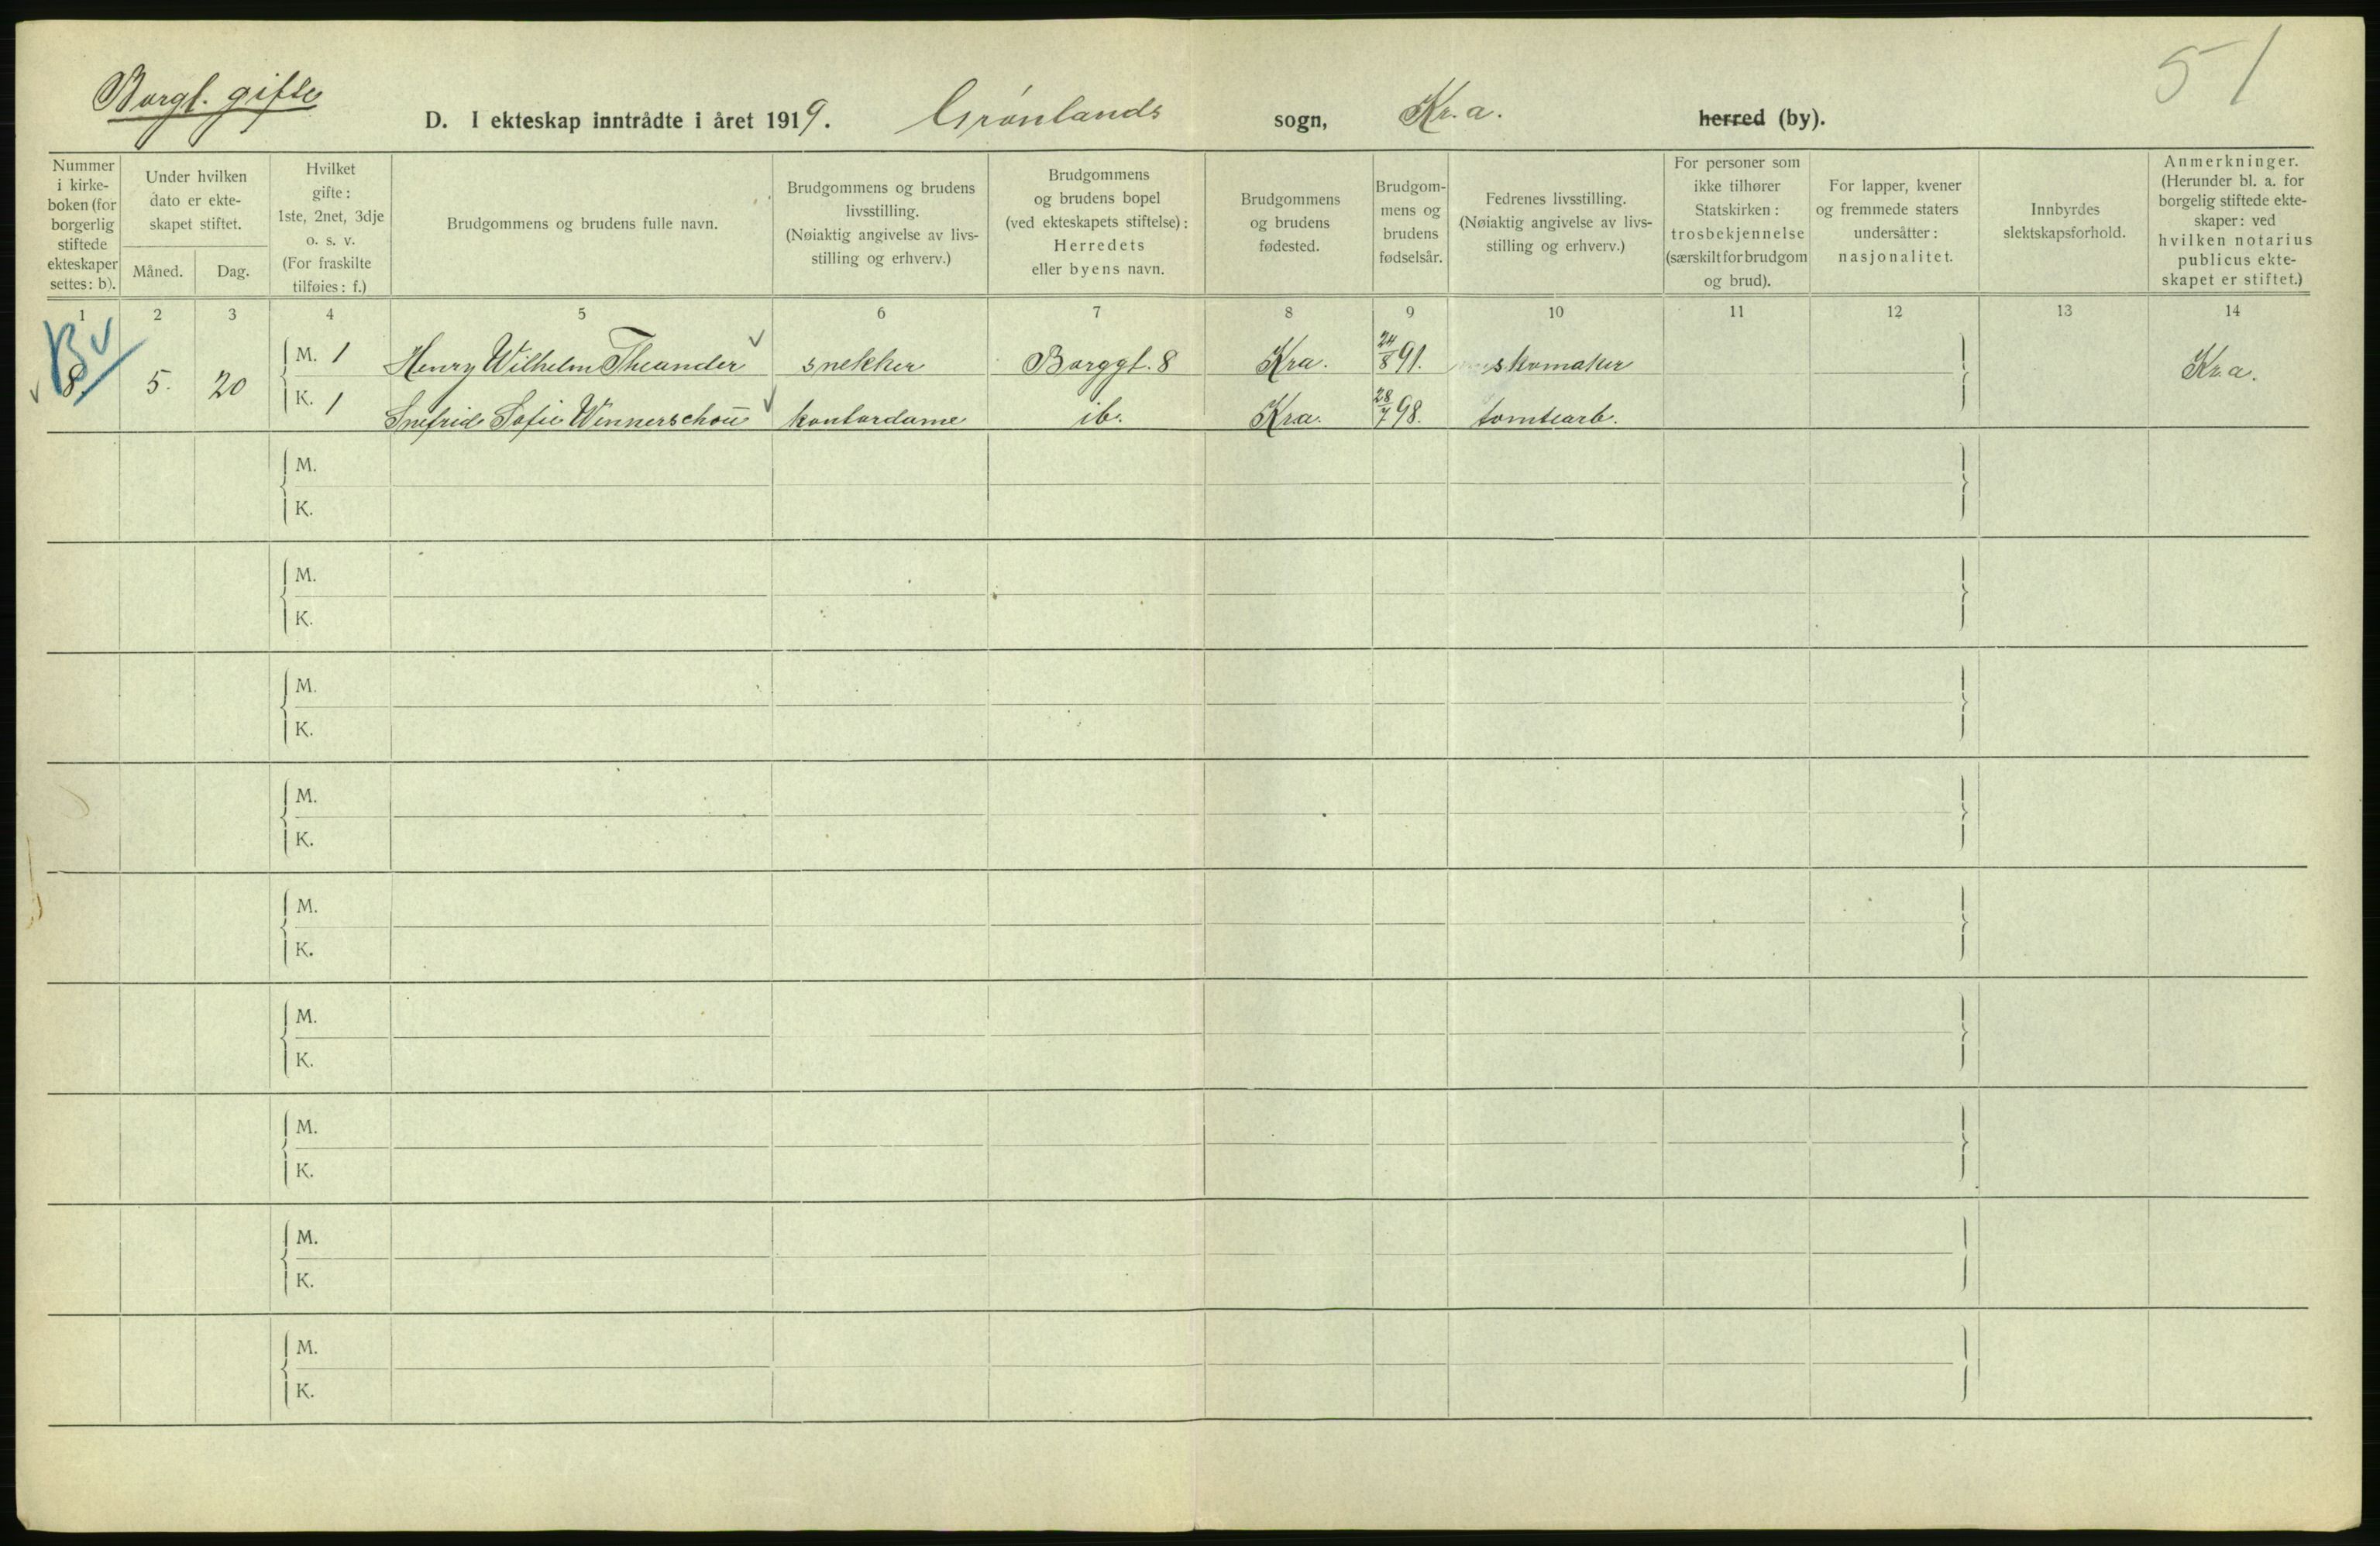 51
Borgl. gifte
D. I ekteskap inntrådte i året 1919. Grønlands sogn, Kr.a. herred (by).
Nummer
i kirke-
boken (for
borgerlig
stiftede
ekteskaper
settes: b).
Under hvilken
dato er ekte-
skapet stiftet.
Måned. Dag.
Hvilket
gifte:
1ste, 2net, 3dje
o. s. v.
(For fraskilte
tilføies: f.)
Brudgommens og brudens fulle navn.
Brudgommens og brudens
livsstilling.
(Nøiaktig angivelse av livs-
stilling og erhverv.)
Brudgommens
og brudens bopel
(ved ekteskapets stiftelse):
Herredets
eller byens navn.
Brudgommens
og brudens
fødested.
Brudgom-
mens og
brudens
fødselsår.
Fedrenes livsstilling.
(Nøiaktig angivelse av livs-
stilling og erhverv.)
For personer som
ikke tilhører
Statskirken:
trosbekjennelse
(særskilt for brudgom
og brud).
For lapper, kvener
og fremmede staters
undersåtter:
nasjonalitet.
Innbyrdes
slektskapsforhold.
Anmerkninger.
(Herunder bl. a. for
borgelig stiftede ekte-
skaper: ved
hvilken notarius
publicus ekte-
skapet er stiftet.)
1 2 3 4 5 6 7 8 9 10 11 12 13 14
B
8 5. 20
M. 1 Henry Wilhelm Theander snekker Borggt. 8 Kra. 24/8 91. skomaker Kr.a.
K. 1 Snefrid Sofie Wennerschou kontordame ib. Kra. 28/7 98. tomtearb.
M.
K.
M.
K.
M.
K.
M.
K.
M.
K.
M.
K.
M.
K.
M.
K.
M.
K.